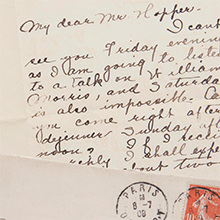 My dear Mr. Hopper-
I can't
see you Friday evening
as I am going to listen
to a talk on William
Morris, and Saturday
is also impossible. Can
you come right after
dejeuner Sunday after
noon? If I
I shall expe
about two
PARIS
8-7
09